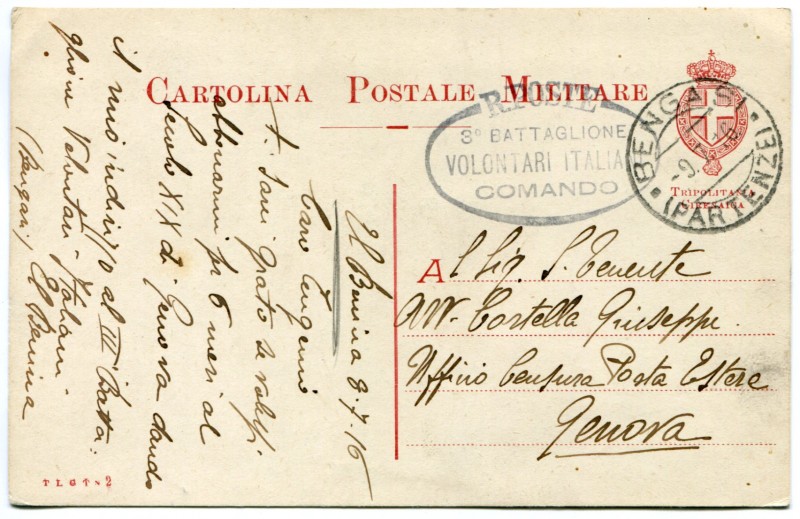 CARTOLINA POSTALE MILITARE
R. POSTE
3º BATTAGLIONE
VOLONTARI ITALIA
COMANDO
BENGASI
(PARTENZE)
TRIPOLITANIA
CIRENAICA
Al Sig. S. Tenente
Avv. Costella Giuseppe
Ufficio Censura Posta Estera
Genova
El Benina 9.7.16
Caro Eugenio
Ti sarei grato se volessi
abbonarmi per 6 mesi al
Secolo XIX di Genova dando
il mio indirizzo al III Batta:
glione Volontari Italiani
(Bengasi) El Benina